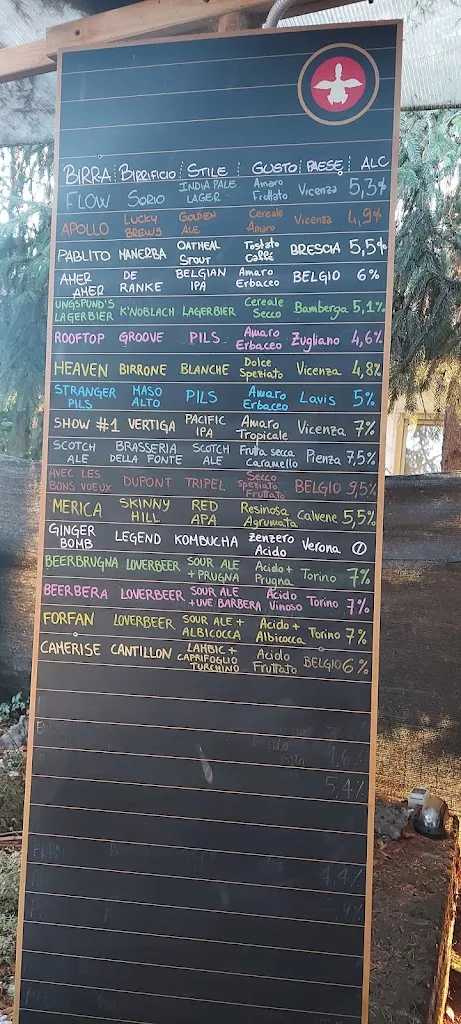 BIRRA BIRRIFICIO STILE GUSTO PAESE ALC
FLOW SORIO INDIA PALE LAGER Amaro Fruttato Vicenza 5,3%
APOLLO LUCKY BREWS GOLDEN ALE Cereale Amaro Vicenza 4,9%
PABLITO MANERBA OATMEAL STOUT Tostato Caffè BRESCIA 5,5%
AHER AHER DE RANKE BELGIAN IPA Amaro Erbaceo BELGIO 6%
UNGSPUND'S LAGERBIER K'NOBLACH LAGERBIER Cereale Secco Bamberga 5,1%
ROOFTOP GROOVE PILS Amaro Erbaceo Zugliano 4,6%
HEAVEN BIRRONE BLANCHE Dolce Speziato Vicenza 4,8%
STRANGER PILS MASO ALTO PILS Amaro Erbaceo Lavis 5%
SHOW #1 VERTIGA PACIFIC IPA Amaro Tropicale Vicenza 7%
SCOTCH ALE BRASSERIA DELLA FONTE SCOTCH ALE Frutta secca Caramello Pienza 7,5%
AVEC LES BONS VOEUX DUPONT TRIPEL Secco Speziato Fruttato BELGIO 9,5%
MERICA SKINNY HILL RED APA Resinosa Agrumata Calvene 5,5%
GINGER BOMB LEGEND KOMBUCHA Zenzero Acido Verona 0
BEERBRUGNA LOVERBEER SOUR ALE + PRUGNA Acido + Prugna Torino 7%
BEERBERA LOVERBEER SOUR ALE +UVE BARBERA Acido Vinoso Torino 7%
FORFAN LOVERBEER SOUR ALE + ALBICOCCA Acido + Albicocca Torino 7%
CAMERISE CANTILLON LAMBIC + CAPRIFOGLIO TURCHINO Acido Fruttato BELGIO 6%
4,6%
5,4%
4,4%